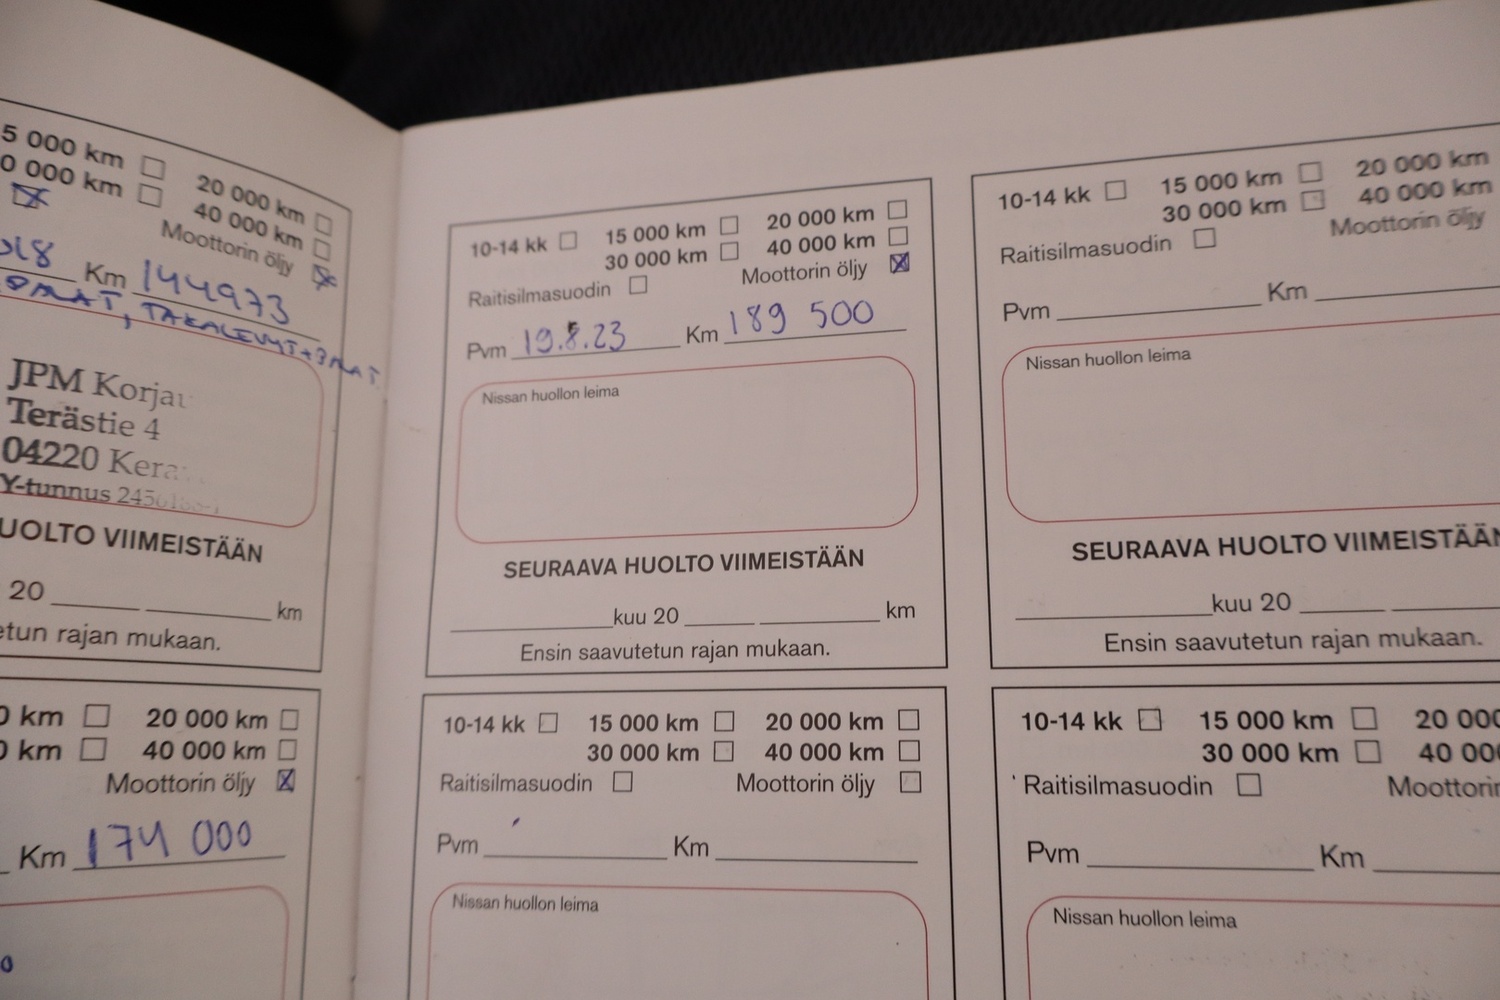 5 000 km 20 000 km
0 000 km 40 000 km
Moottorin öljy
018 Km 144973
TAKALEVYT+PALAT
JPM Korjau
Terästie 4
04220 Kera
Y-tunnus
UOLTO VIIMEISTÄÄN
20 km
etun rajan mukaan.
0 km 20 000 km
0 km 40 000 km
Moottorin öljy
Km 174 000
10-14 kk 15 000 km 20 000 km
30 000 km 40 000 km
Raitisilmasuodin Moottorin öljy
Pvm 19.8.23 Km 189 500
Nissan huollon leima
SEURAAVA HUOLTO VIIMEISTÄÄN
kuu 20 km
Ensin saavutetun rajan mukaan.
10-14 kk 15 000 km 20 000 km
30 000 km 40 000 km
Raitisilmasuodin Moottorin öljy
Pvm Km
Nissan huollon leima
10-14 kk 15 000 km 20 000 km
30 000 km 40 000 km
Raitisilmasuodin Moottorin öljy
Pvm Km
Nissan huollon leima
SEURAAVA HUOLTO VIIMEISTÄÄN
kuu 20
Ensin saavutetun rajan mukaan.
10-14 kk 15 000 km 20 000
30 000 km 40 000
Raitisilmasuodin Moottorin
Pvm Km
Nissan huollon leima